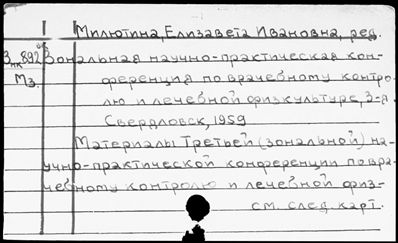 Милютина, Елизавета Ивановна, ред.
З 892 Зональная научно-практическая кон-
пк
М3. ференция по врачебному контро-
лю и лечебной физкультуре, 3-я.
Свердловск, 1959
Материалы Третьей (зональной) на-
учно-практической конференции по вра-
чебному контролю и лечебной физ-
см. след. карт.